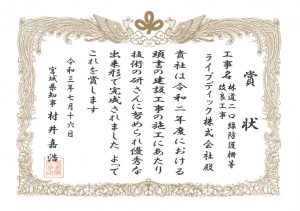 賞状
工事名 林道二口線防護柵等
改良工事
ライブディック株式会社殿
貴社は令和二年度における
頭書の建設工事の施工にあたり
技術の研さんに努められ優秀な
出来形で完成されました よって
これを賞します
令和三年七月十六日
宮城県知事 村井嘉浩